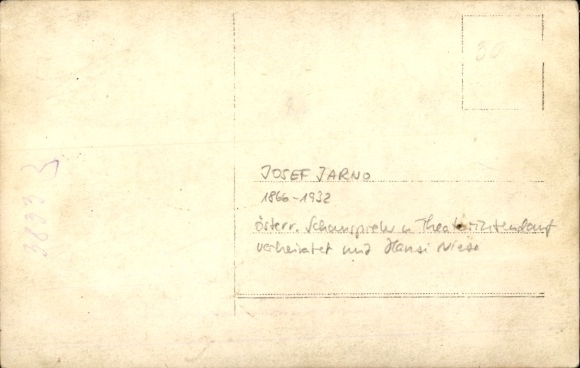 30
JOSEF JARNO
1866-1932
Österr. Schauspieler u Theaterintendant
verheiratet mit Hansi Niese
3833